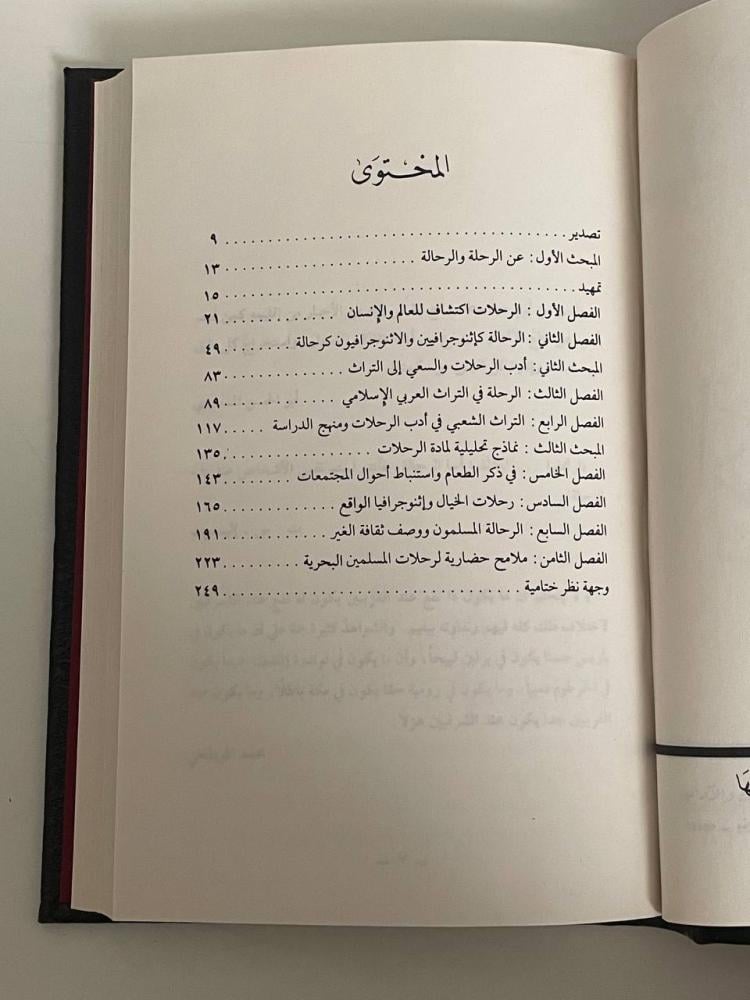 المحتوى
تصدير ........................................ ٩
المبحث الأول: عن الرحلة والرحالة ...................... ١٣
تمهيد ........................................ ١٥
الفصل الأول: الرحلات اكتشاف للعالم والإنسان ............ ٢١
الفصل الثاني: الرحالة كإثنوجرافيين والاثنوجرافيون كرحالة ......... ٤٩
المبحث الثاني: أدب الرحلات والسعي إلى التراث ............. ٨٣
الفصل الثالث: الرحلة في التراث العربي الإسلامي ............ ٨٩
الفصل الرابع: التراث الشعبي في أدب الرحلات ومنهج الدراسة ..... ١١٧
المبحث الثالث: نماذج تحليلية لمادة الرحلات ................ ١٣٥
الفصل الخامس: في ذكر الطعام واستنباط أحوال المجتمعات ........ ١٤٣
الفصل السادس: رحلات الخيال وإثنوجرافيا الواقع ............. ١٦٥
الفصل السابع: الرحالة المسلمون ووصف ثقافة الغير ............ ١٩١
الفصل الثامن: ملامح حضارية لرحلات المسلمين البحرية ......... ٢٢٣
وجهة نظر ختامية .................................. ٢٤٩